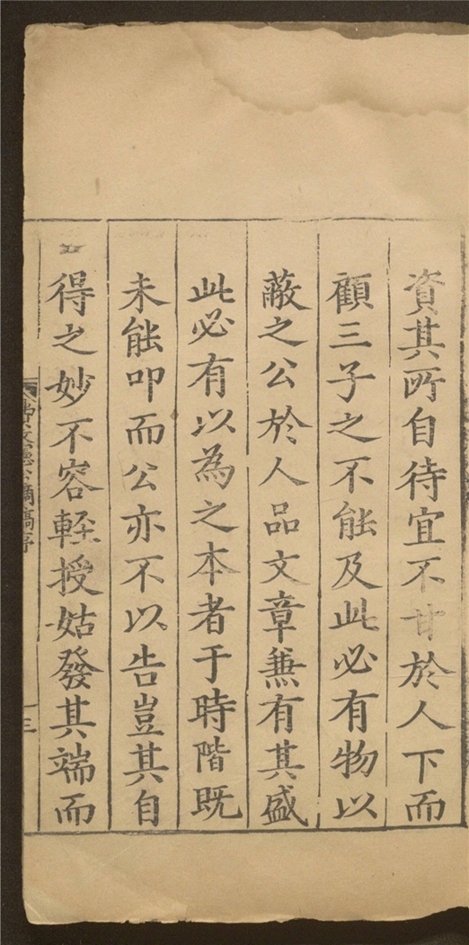 資其所自待宜不甘於人下而
顧三子之不能及此必有物以
蔽之公於人品文章兼有其盛
此必有以為之本者于時階既
未能叩而公亦不以告豈其自
得之妙不容輕授姑發其端而
費文憲公摘稿序
三